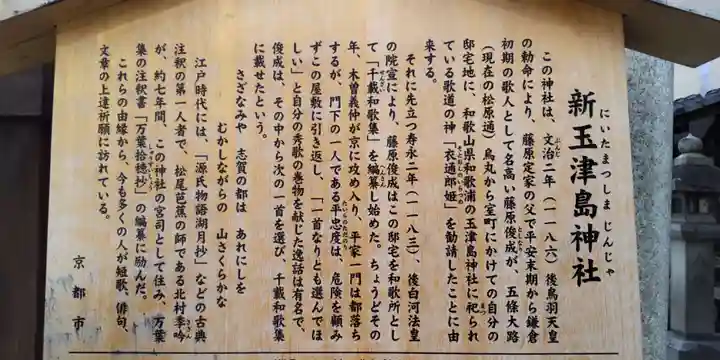 新玉津島神社
にいたまつしまじんじゃ
この神社は、文治二年（一一八六）後鳥羽天皇
の勅命により、藤原定家の父で平安末期から鎌倉
初期の歌人として名高い藤原俊成が、五條大路
（現在の松原通）烏丸から室町にかけての自分の
邸宅地に、和歌山県和歌浦の玉津島神社に祀られ
ている歌道の神「衣通郎姫」を勧請したことに由
来する。
それに先立つ寿永二年（一一八三）、後白河法皇
の院宣により、藤原俊成はこの邸宅を和歌所とし
て「千載和歌集」を編纂し始めた。ちょうどその
年、木曽義仲が京に攻め入り、平家一門は都落ち
するが、門下の一人である平忠度は、危険を顧み
ずこの屋敷に引き返し、「一首なりとも選んでほ
しい」と自分の秀歌の巻物を献じた逸話は有名で、
俊成は、その中から次の一首を選び、千載和歌集
に載せたという。
さざなみや　志賀の都は　あれにしを
むかしながらの　山さくらかな
江戸時代には、「源氏物語湖月抄」などの古典
注釈の第一人者で、松尾芭蕉の師である北村季吟
が、約七年間、この神社の宮司として住み、万葉
集の注釈書「万葉拾穂抄」の編纂に励んだ。
これらの由縁から、今も多くの人が短歌、俳句、
文章の上達祈願に訪れている。
京都市